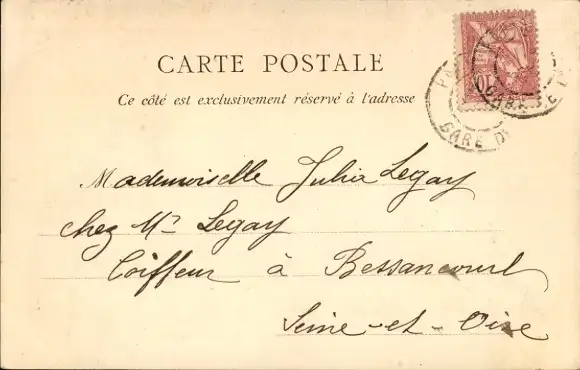 CARTE POSTALE
Ce côté est exclusivement réservé à l'adresse
10
GARE
GARE D
Mademoiselle Julia Legay
chez Mr Legay
Coiffeur à Bessancourt
Seine-et-Oise